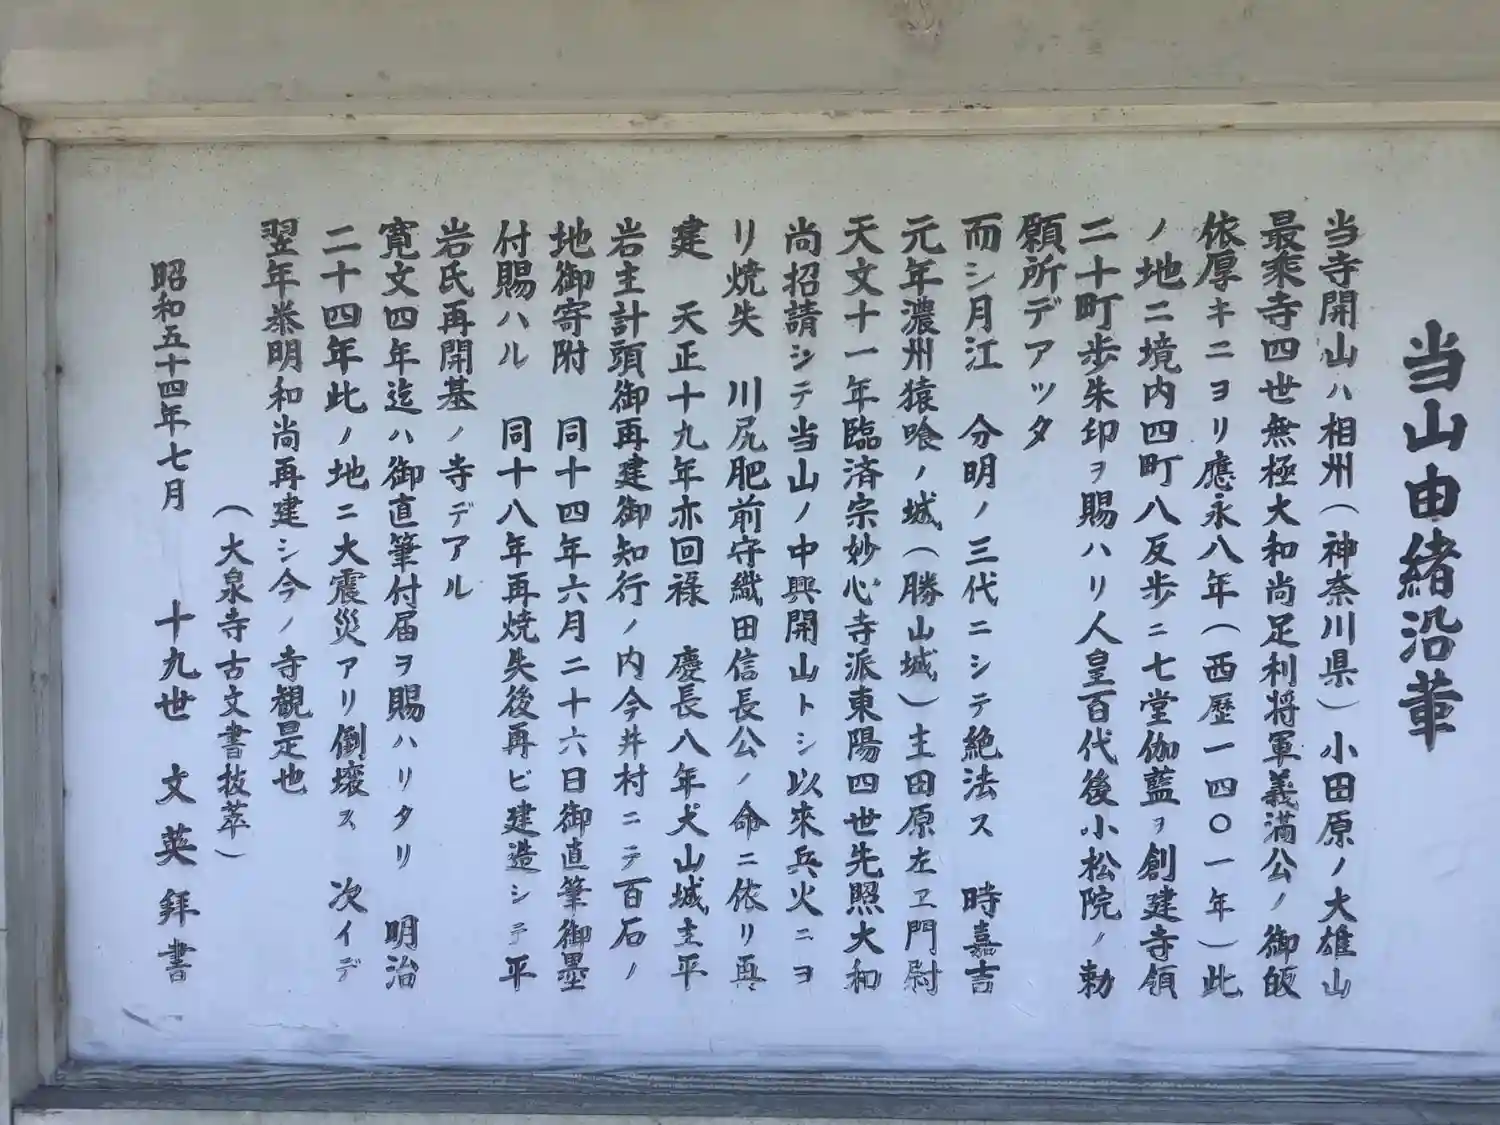 当山由緒沿革
当寺開山ハ相州(神奈川県)小田原ノ大雄山
最乘寺四世無極大和尚足利将軍義満公ノ御皈
依厚キニヨリ應永八年(西歷一四〇一年)此
ノ地ニ境内四町八反歩ニ七堂伽藍ヲ創建寺領
二十町歩朱印ヲ賜ハリ人皇百代後小松院ノ勅
願所デアッタ
而シ月江 分明ノ三代ニシテ絶法ス 時嘉吉
元年濃州猿喰ノ城(勝山城)主田原左ヱ門尉
天文十一年臨済宗妙心寺派東陽四世先照大和
尚招請シテ当山ノ中興開山トシ以來兵火ニヨ
リ焼失 川尻肥前守織田信長公ノ命ニ依リ再
建 天正十九年亦回禄 慶長八年犬山城主平
岩主計頭御再建御知行ノ内今井村ニテ百石ノ
地御寄附 同十四年六月二十六日御直筆御墨
付賜ハル 同十八年再焼失後再ビ建造シテ平
岩氏再開基ノ寺デアル
寛文四年迄ハ御直筆付届ヲ賜ハリタリ 明治
二十四年此ノ地ニ大震災アリ倒壊ス 次イデ
翌年恭明和尚再建シ今ノ寺観是也
(大泉寺古文書抜萃)
昭和五十四年七月 十九世 文英拜書